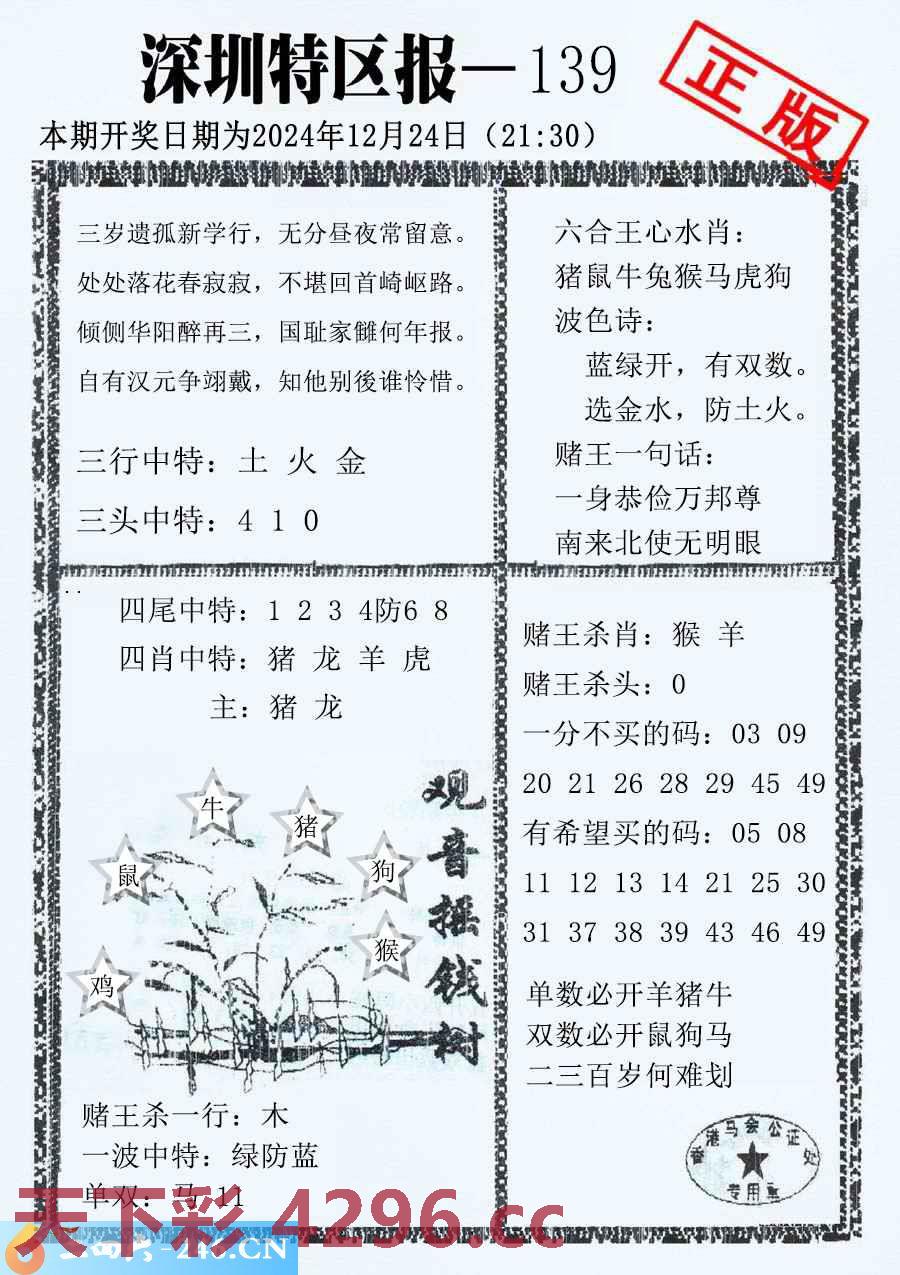 深圳特区报—139
正版
本期开奖日期为2024年12月24日（21:30）
三岁遗孤新学行，无分昼夜常留意。
处处落花春寂寂，不堪回首崎岖路。
倾侧华阳醉再三，国耻家雠何年报。
自有汉元争翊戴，知他别後谁怜惜。
三行中特：土 火 金
三头中特：4 1 0
六合王心水肖：
猪鼠牛兔猴马虎狗
波色诗：
蓝绿开，有双数。
选金水，防土火。
赌王一句话：
一身恭俭万邦尊
南来北使无明眼
四尾中特：1 2 3 4防6 8
四肖中特：猪 龙 羊 虎
主：猪 龙
牛
猪
鼠
狗
猴
鸡
观音摇钱树
赌王杀一行：木
一波中特：绿防蓝
单双：马 11
赌王杀肖：猴 羊
赌王杀头：0
一分不买的码：03 09
20 21 26 28 29 45 49
有希望买的码：05 08
11 12 13 14 21 25 30
31 37 38 39 43 46 49
单数必开羊猪牛
双数必开鼠狗马
二三百岁何难划
香港马会公证处
专用章
天下彩 4296.cc
-246.CN